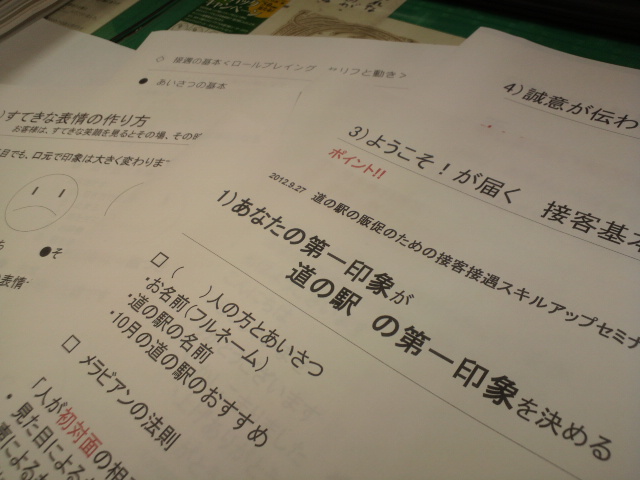 接遇の基本<ロールプレイング
と動き>
● あいさつの基本
すてきな表情の作り方
お客様は、すてきな笑顔を見るとその場、その
目でも、口元で印象は大きく変わりま
●そ
表情
4)誠意が伝わ
3)ようこそ!が届く 接客基本
ポイント!!
2012.9.27 道の駅の販促のための接客接遇スキルアップセミナ
1)あなたの第一印象が
道の駅 の第一印象を決める
□ ( )人の方とあいさつ
・お名前(フルネーム)
・道の駅の名前
・10月の道の駅のおすすめ
□ メラビアンの法則
「人が初対面の相
・見た目による
声による